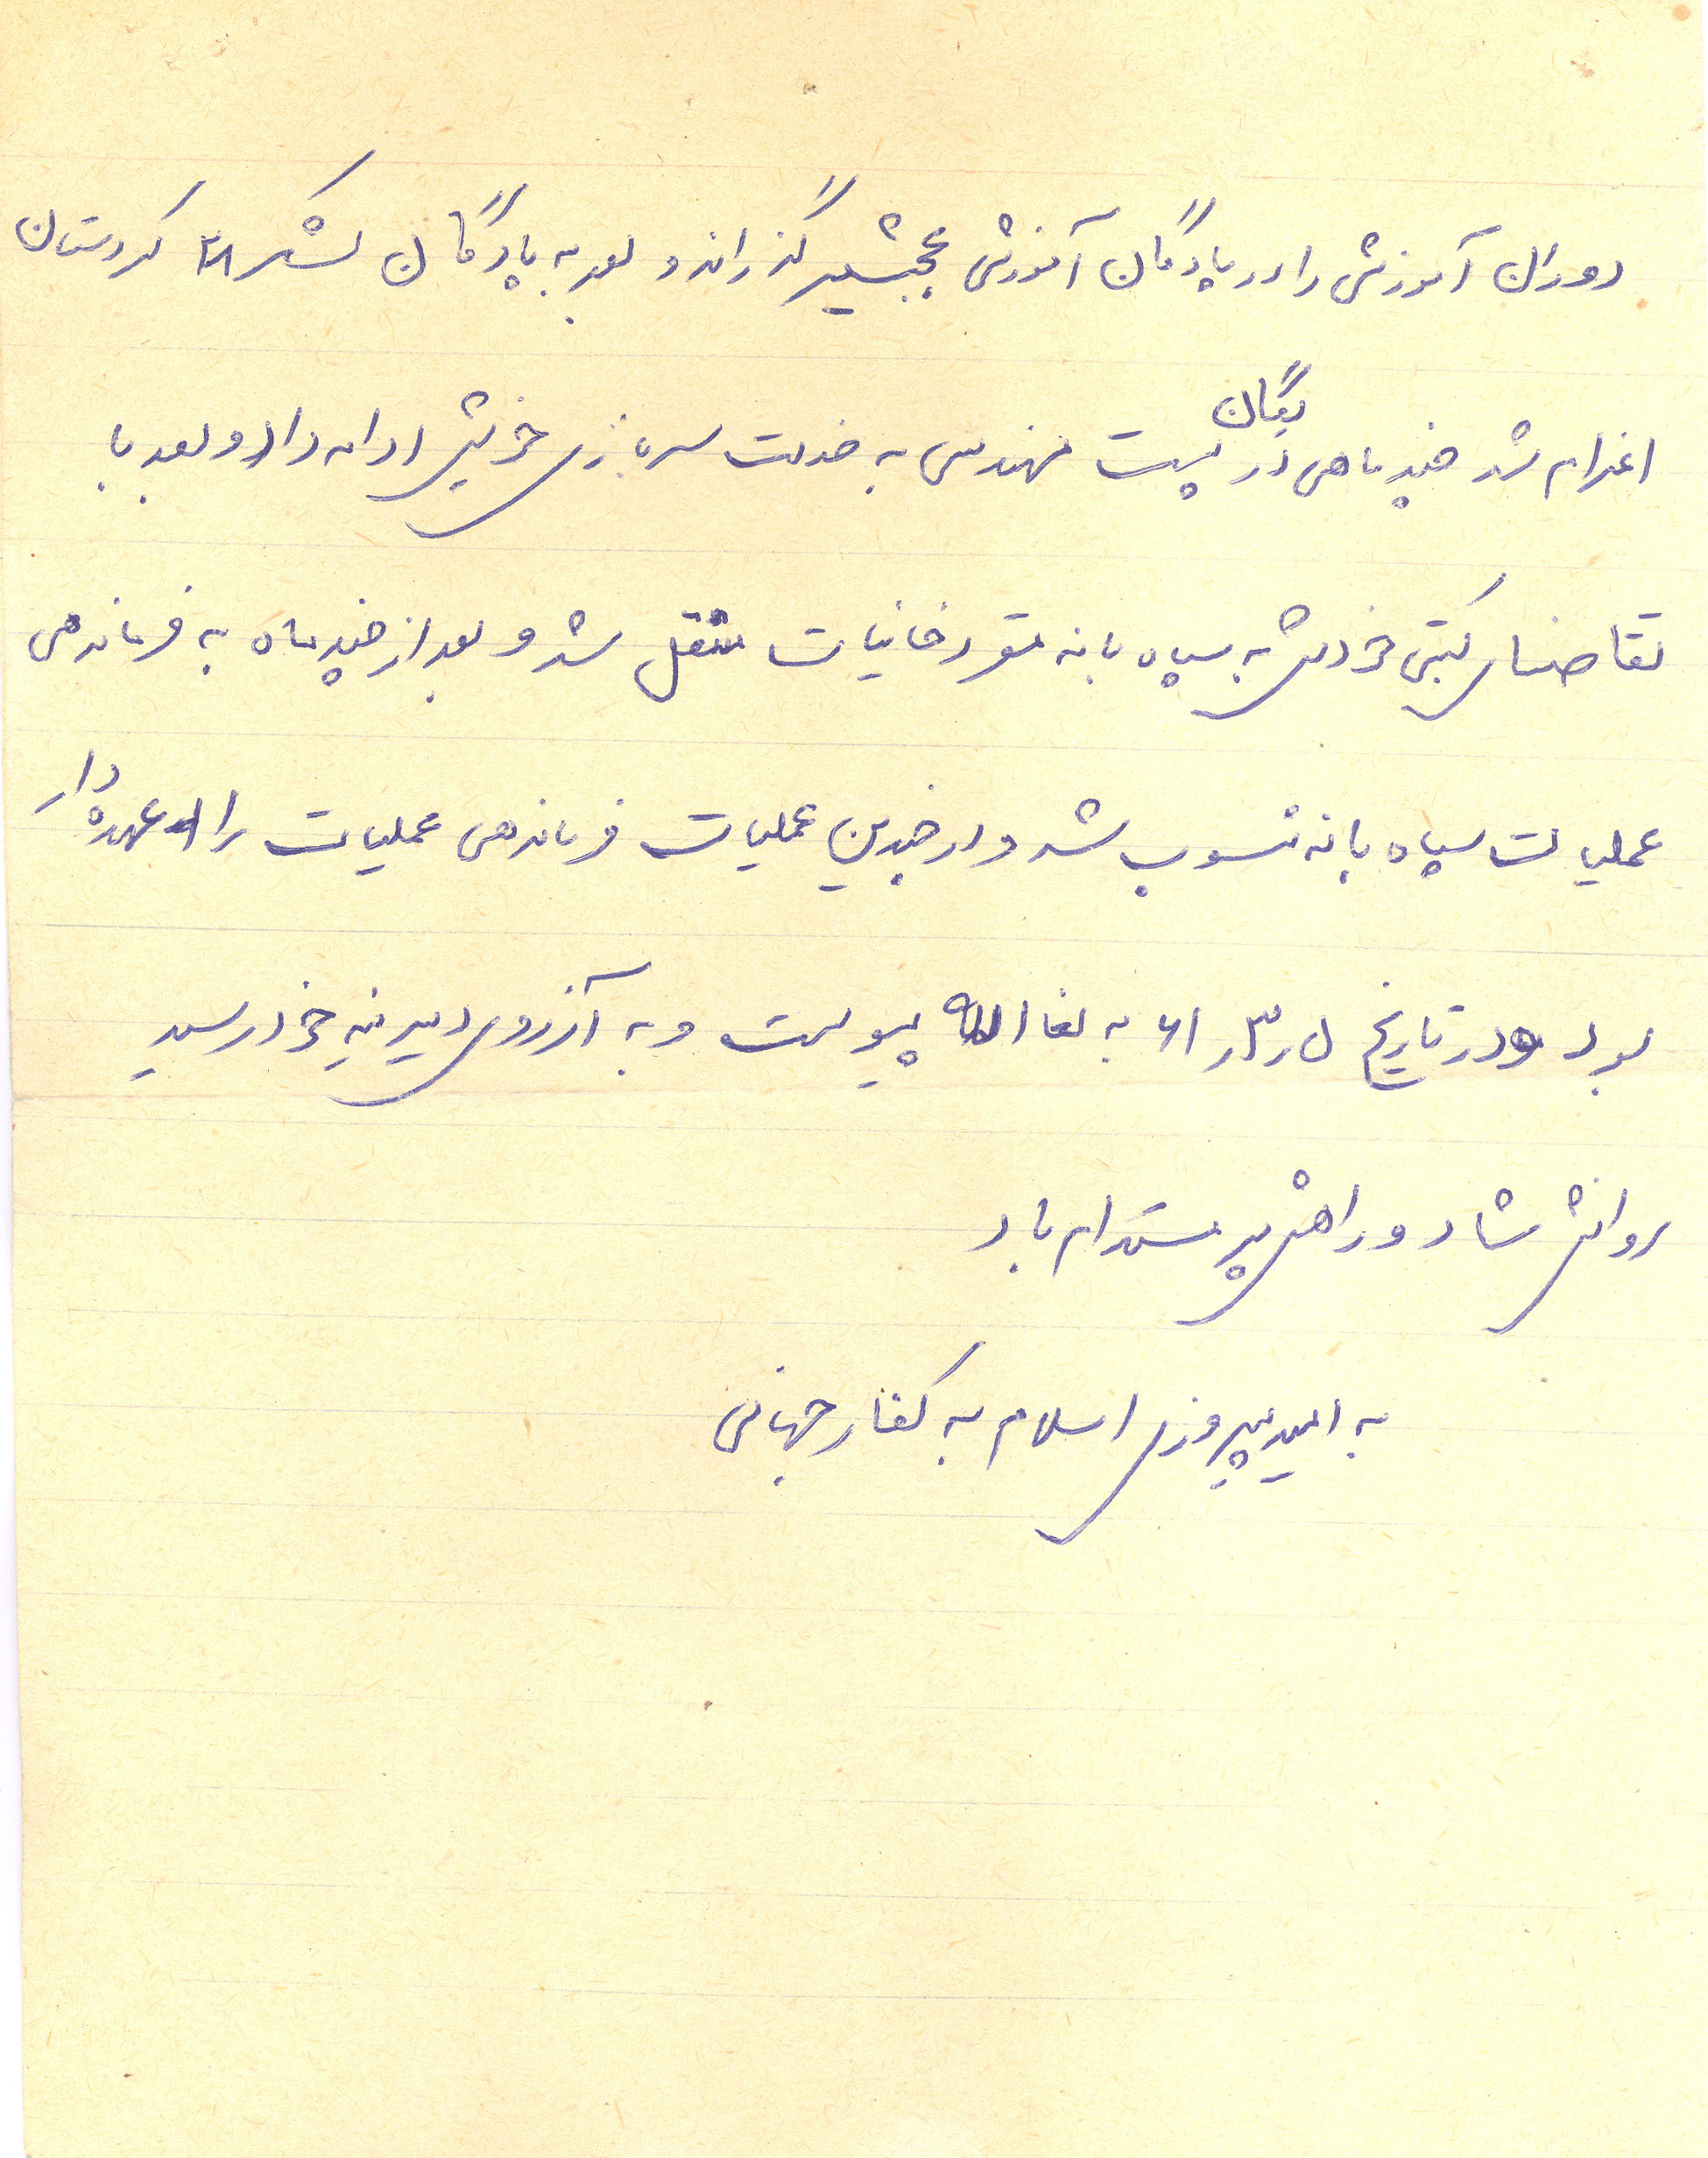 دوران آموزش را در پادگان آموزش عجبشیر گذراند و بعد به پادگان لشکر ۲۸ کردستان
اعزام شد چند ماهی در یگان پست مهندسی به خدمت سربازی خویش ادامه داد و بعد با
تقاضای کتبی خودش به سپاه بانه منتقل شد و بعد از چند ماه به فرماندهی
عملیات سپاه بانه منسوب شد و در چندین عملیات فرماندهی عملیات را عهده دار
بود و در تاریخ به لقا الله پیوست و به آرزوی دیرینه خود رسید
روانش شاد و راهش پر مستدام باد
به امید پیروزی اسلام به کفار جهانی